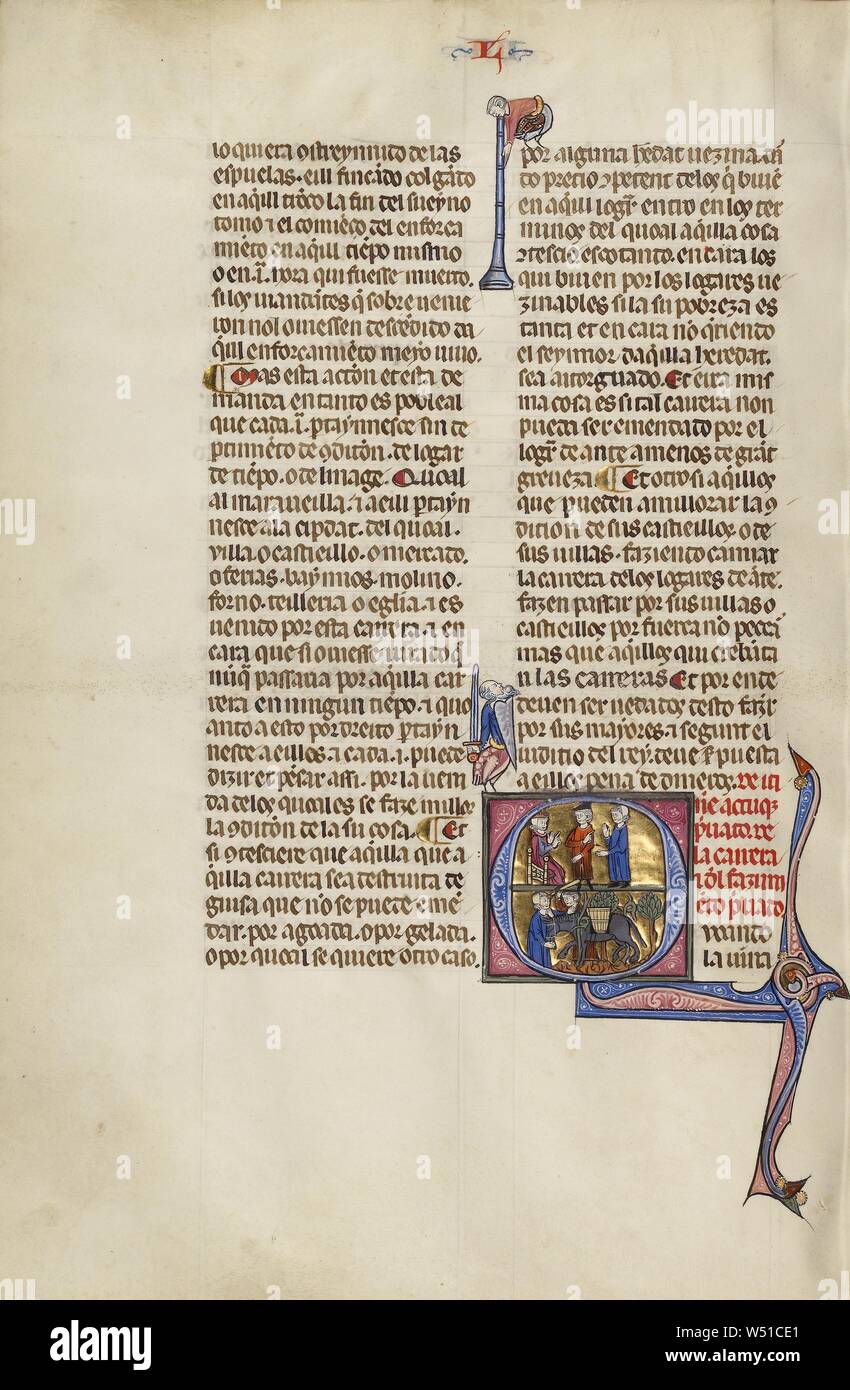 L
lo quiera 9streynnido de las
espuelas. eill fincado colgado
en aqueill tiempo la fin del sueyno
como ⁊ el comieço del enforca
mieto en aqueill tiepo mismo
o en .i. hora qui fuesse muerto.
si los uiandãtes q̃ sobreuenie
ron nol ouiessen descedido da
q̃ill enforcamieto meyo uiuo.
Mas esta action et esta de
manda en tanto es pobleal
que cada .i. ptaynnesce sin de
ptimieto de 9diton. de logar
de tiepo. o de linage. Quoal
al maraueilla. ⁊ a eill ptayn
nesce a la cipdat. del quoal.
villa. o castieillo. o mercado.
o ferias. baynnos. molino.
forno. teilleria o eglia. ⁊ es
uenido por esta carrera. ⁊ en
cara que si ouiesse iurado q̃
nũq̃ passaria por aq̃illa car
rera en ningun tiepo. ⁊ quo
anto a esto por dreito ptayn
nesce a eillos. ⁊ cada .i. puede
dizir et pesar assi. por la uein
da de los quoales se faze millor
la 9diton de la su cosa. Et
si 9tesciere que aq̃illa que a
q̃illa carrera sea destruita de
guisa que no se puede eme
dar. por agoada. o por gelada.
o por quoal se quiere otro caso.
por alguna hedat uezina. dã
do precio 9petent de los q̃ biue
en aq̃ill logr̃. entro en los ter
minos del quoal aq̃illa cosa
9tescio. esto tanto. encara los
qui biuen por los logares ue
zinables si la su pobreza es
tanta et encara no q̃riendo
el seynnor daq̃illa heredat.
sea atorguado. Et esta mis
ma cosa es si tal carrera non
pueda ser emendado por el
logr̃ de ante a menos de grãt
greueza. Et otrosi aq̃illos
que pueden amillorar la 9
dition de sus castieillos o de
sus uillas. faziendo camiar
la carrera de los logares de ãte.
fazen passar por sus uillas o
castieillos por fuerca no pecca
mas que aq̃illos qui crebãta
n las carreras Et por ende
deuen ser uedatos desto fazr
por sus mayores. ⁊ segunt el
iuditio del rey. deue ser puesta
a eillos pena de dineros. De iti
ne actuq̃
p̃uato. de
la carrera
⁊ dl fazim
ieto p̃uado
Uoando
la uiura
alamy
Image ID: W51CE1
www.alamy.com